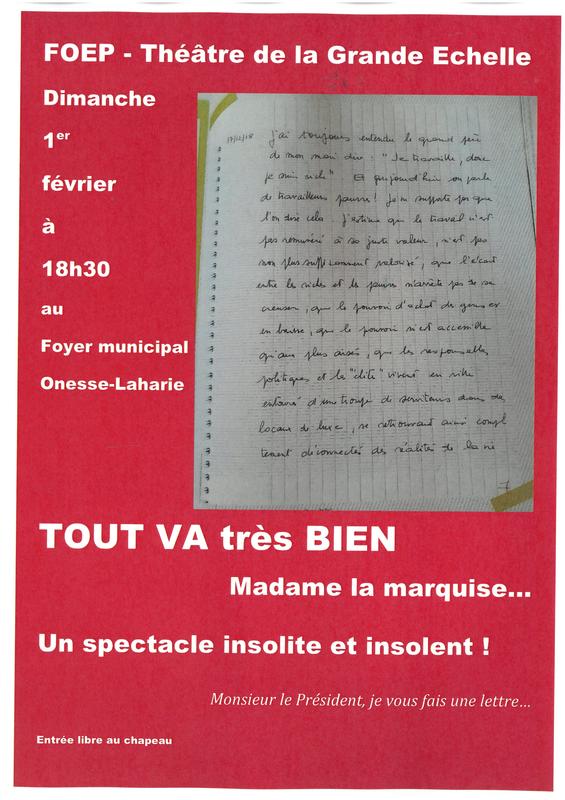 FOEP - Théâtre de la Grande Echelle
Dimanche
1er
février
à
18h30
au
Foyer municipal
Onesse-Laharie
17/12/18
j'ai toujours entendu le grand père
de mon mari dire : "Je travaille, donc
je suis riche" Et aujourd'hui on parle
de travailleurs pauvres ! Je ne supporte pas que
l'on dise cela. J'estime que le travail n'est
pas rémunéré à sa juste valeur, n'est pas
non plus suffisamment valorisé, que l'écart
entre les riches et les pauvres n'arrête pas de se
creuser, que le pouvoir d'achat des gens est
en baisse, que le pouvoir n'est accessible
qu'aux plus aisés, que les responsables
politiques et la "élite" vivent en ville
entouré d'une troupe de serviteurs dans des
locaux de luxe, se retrouvant ainsi compl
tement déconnectés des réalités de la vie
TOUT VA très BIEN
Madame la marquise...
Un spectacle insolite et insolent !
Monsieur le Président, je vous fais une lettre...
Entrée libre au chapeau